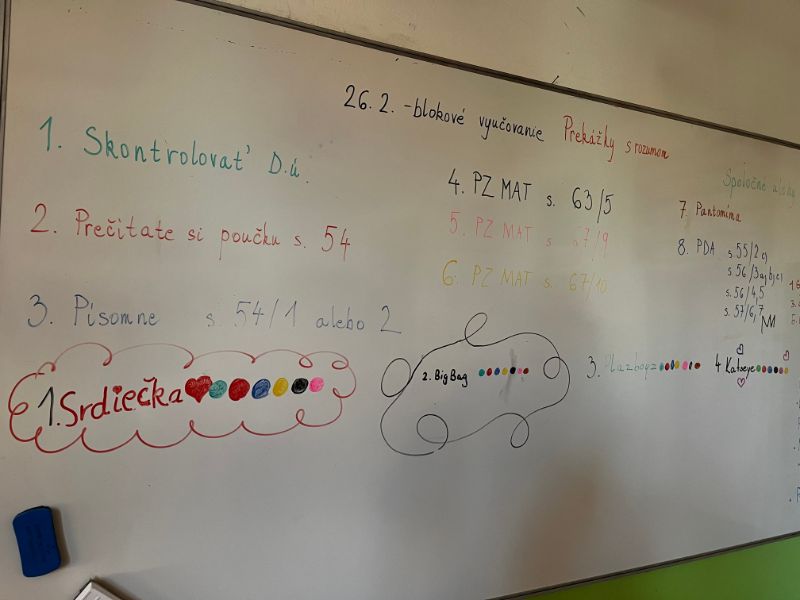 26. 2. - blokové vyučovanie Prekážky s rozumom
1. Skontrolovať D.ú.
2. Prečítate si poučku s. 54
3. Písomne s. 54/1 alebo 2
4. PZ MAT s. 63/5
5. PZ MAT s. 67/9
6. PZ MAT s. 67/10
Spoločné
7. Pantomíma
8. PDA s. 55/2 c)
s. 56/3 a) b) c)
s. 56/4,5
s. 57/6,7
1. Srdiečka
2. Big Bag
3.
4 Katseye